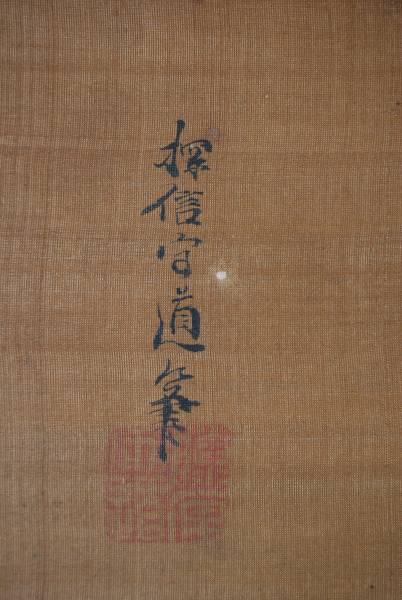 探信守道筆